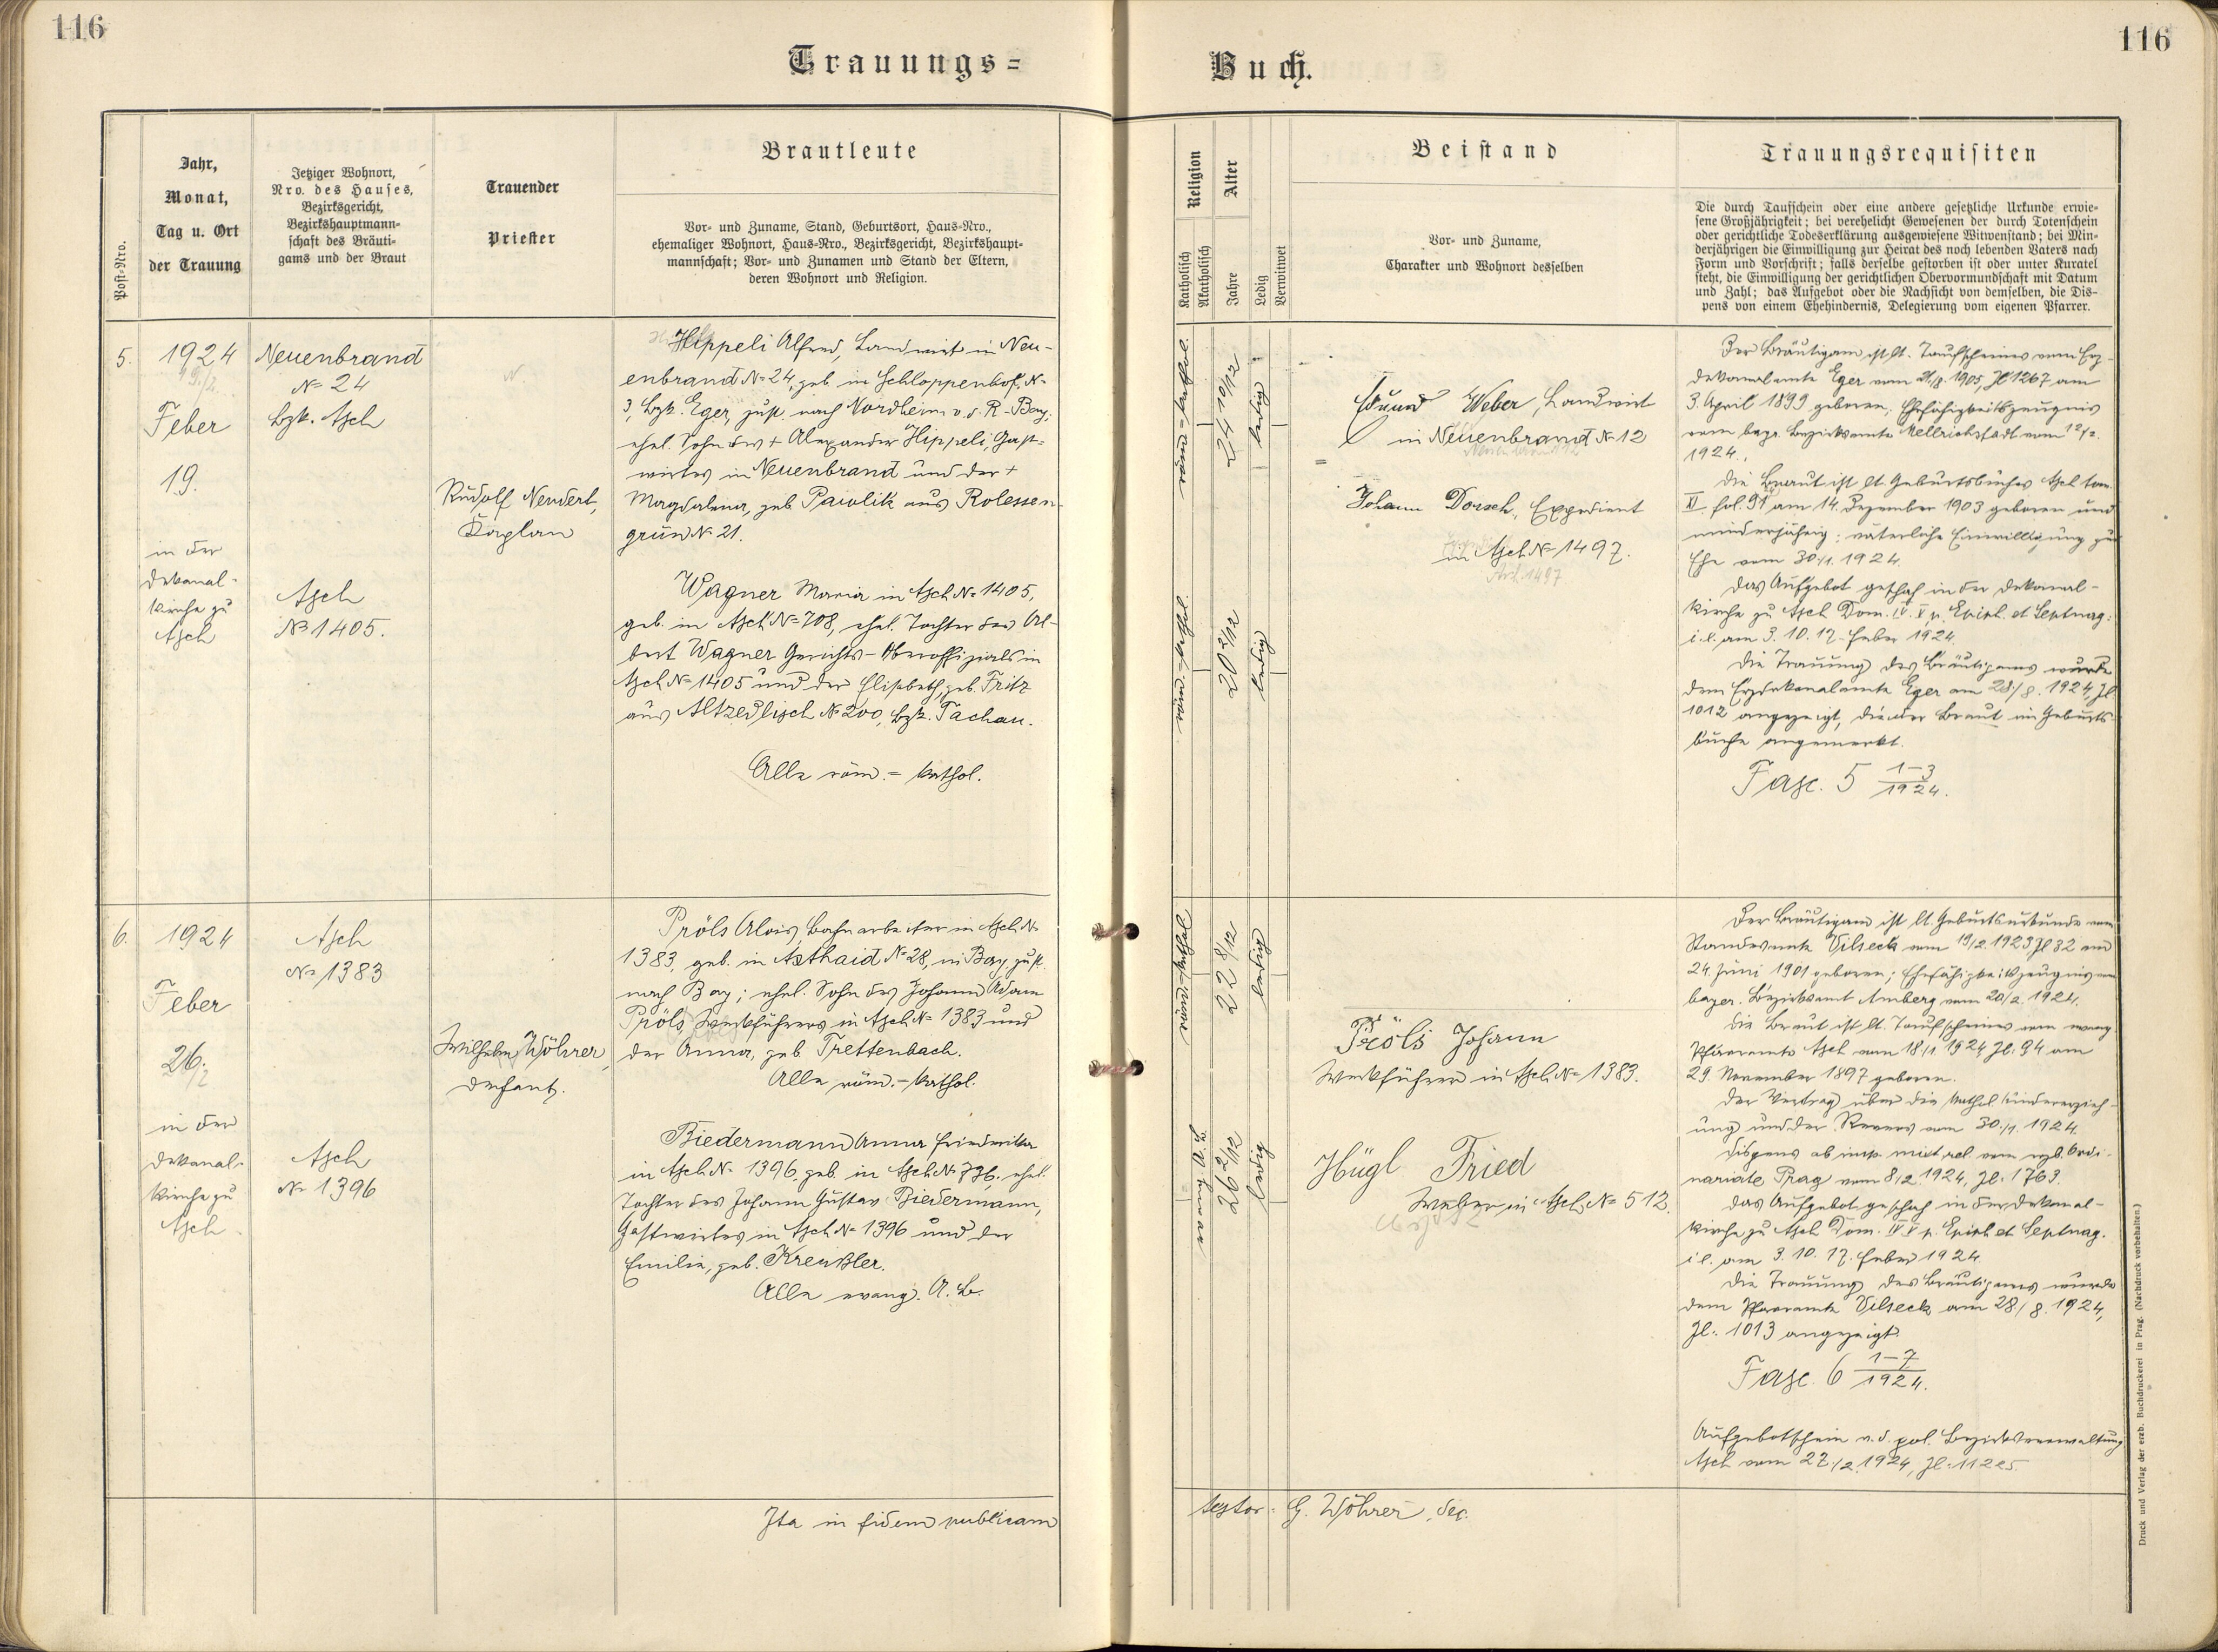 116
116
Trauungs=
Buch.
Post-Nro.
Jahr,
Monat,
Tag u. Ort
der Trauung
Jetziger Wohnort,
Nro. des Hauses,
Bezirksgericht,
Bezirkshauptmann-
schaft des Bräuti-
gams und der Braut
Trauender
Priester
Brautleute
Vor- und Zuname, Stand, Geburtsort, Haus-Nro.,
ehemaliger Wohnort, Haus-Nro., Bezirksgericht, Bezirkshaupt-
mannschaft; Vor- und Zunamen und Stand der Eltern,
deren Wohnort und Religion.
Religion
Katholisch
Akatholisch
Alter
Jahre
Ledig
Verwitwet
Beistand
Vor- und Zuname,
Charakter und Wohnort desselben
Trauungsrequisiten
Die durch Taufschein oder eine andere gesetzliche Urkunde erwie-
sene Großjährigkeit; bei verehelicht Gewesenen der durch Totenschein
oder gerichtliche Todeserklärung ausgewiesene Witwenstand; bei Min-
derjährigen die Einwilligung zur Heirat des noch lebenden Vaters nach
Form und Vorschrift; falls derselbe gestorben ist oder unter Kuratel
steht, die Einwilligung der gerichtlichen Obervormundschaft mit Datum
und Zahl; das Aufgebot oder die Nachsicht von demselben, die Dis-
pens von einem Ehehindernis, Delegierung vom eigenen Pfarrer.
5.
1924
19./2.
Feber
19.
in der
Dekanal-
kirche zu
Asch
Neuenbrand
№ 24
Bzk. Asch
Asch
№ 1405.
Rudolf Neudert,
Kaplan
Hippeli Alfred, Landwirt in Neu-
enbrand № 24, geb. in Schloppenhof, №
3, Bzk. Eger, zust. nach Nordheim v. d. R - Bay.
ehel. Sohn des + Alexander Hippeli, Gast-
wirtes in Neuenbrand und der +
Magdalena, geb. aus Rolessen-
grün № 21.
Wagner Maria in Asch № 1405,
geb. in Asch № 708, ehel. Tochter des Al-
bert Wagner Gerichts-Oberoffizials in
Asch № 1405 und der Elisabeth, geb. Fritz
aus Altzedlisch № 200, Bzk. Tachau.
Alle röm.- kathol.
24 10/12
ledig
20 2/12
ledig
Eduard Weber, Landwirt
in Neuenbrand № 12
Johann Dorsch, Expedient
in Asch № 1497.
Asch 1497
Der Bräutigam ist lt. Taufscheines vom Erz-
dekanalamte Eger vom 21/8. 1905, Zl 1267 am
3. April 1899 geboren; Ehefähigkeitszeugnis
vom bayr. Bezirksamte Mellrichstadt vom 12/2.
1924.
Die Braut ist lt. Geburtsbuches Asch tom.
XI. fol. 91 am 14. Dezember 1903 geboren und
minderjährig; väterliche Einwilligung zur
Ehe vom 30./1. 1924.
Das Aufgebot geschah in der Dekanal-
kirche zu Asch Dom. IV. V p. Epiph. et Septuag.
i. e. am 3. 10. 17. Feber 1924
Die Trauung des Bräutigams wurde
dem Erzdekanalamte Eger am 28./8. 1924, Zl
1012 angezeigt, die der Braut im Geburts-
buche angemerkt.
Fasc. 5 1-3/1924.
6.
1924
Feber
26./2
in der
Dekanal-
kirche zu
Asch
Asch
№ 1383
Asch
№ 1396
Wilhelm Wöhrer,
Dechant.
Pröls Alois, Bahnarbeiter in Asch №
1383, geb. in Axthaid № 28, in Bay., zust.
nach Bay; ehel. Sohn des Johann Adam
Pröls, Werkführers in Asch № 1383 und
der Anna, geb. Trettenbach.
Alle röm.-kathol.
Biedermann Anna Friederika
in Asch № 1396, geb. in Asch № 736, ehel.
Tochter des Johann Gustav Biedermann,
Gastwirtes in Asch № 1396 und der
Emilie, geb. Kreußler.
Alle evang. A. B.
22 8/12
ledig
26 2/12
ledig
Pröls Johann
Werkführer in Asch № 1383.
Hügl Fried
Weber in Asch № 512.
Der Bräutigam ist lt. Geburtsurkunde vom
Standesamte Vilseck vom 19/2. 1923 Zl 32 am
24. Juni 1901 geboren; Ehefähigkeitszeugnis vom
bayer. Bezirksamt Amberg vom 20/2. 1924.
Die Braut ist lt. Taufscheines vom evang.
Pfarramte Asch vom 18./1. 1924 Zl. 94 am
29. November 1897 geboren.
Der Vertrag über die kathol. Kindererzieh-
ung und der Revers vom 30./1. 1924.
Dispens ab imp. mixt. rel. vom erzb. Ordi-
nariate Prag vom 8/2. 1924, Zl. 1763.
Das Aufgebot geschah in der Dekanal-
kirche zu Asch Dom. IV V p. Epiph. et Septuag.
i. e. am 3. 10. 17. Feber 1924
Die Trauung des Bräutigams wurde
dem Pfarramte Vilseck am 28/8. 1924,
Zl. 1013 angezeigt.
Fasc. 6 1-7/1924.
Aufgebotschein v. d. pol. Bezirksverwaltung
Asch vom 27./2. 1924, Zl. 11225.
Ita in fidem publicam
testor: G. Wöhrer, Dec.
Druck und Verlag der erzb. Buchdruckerei in Prag. (Nachdruck vorbehalten.)